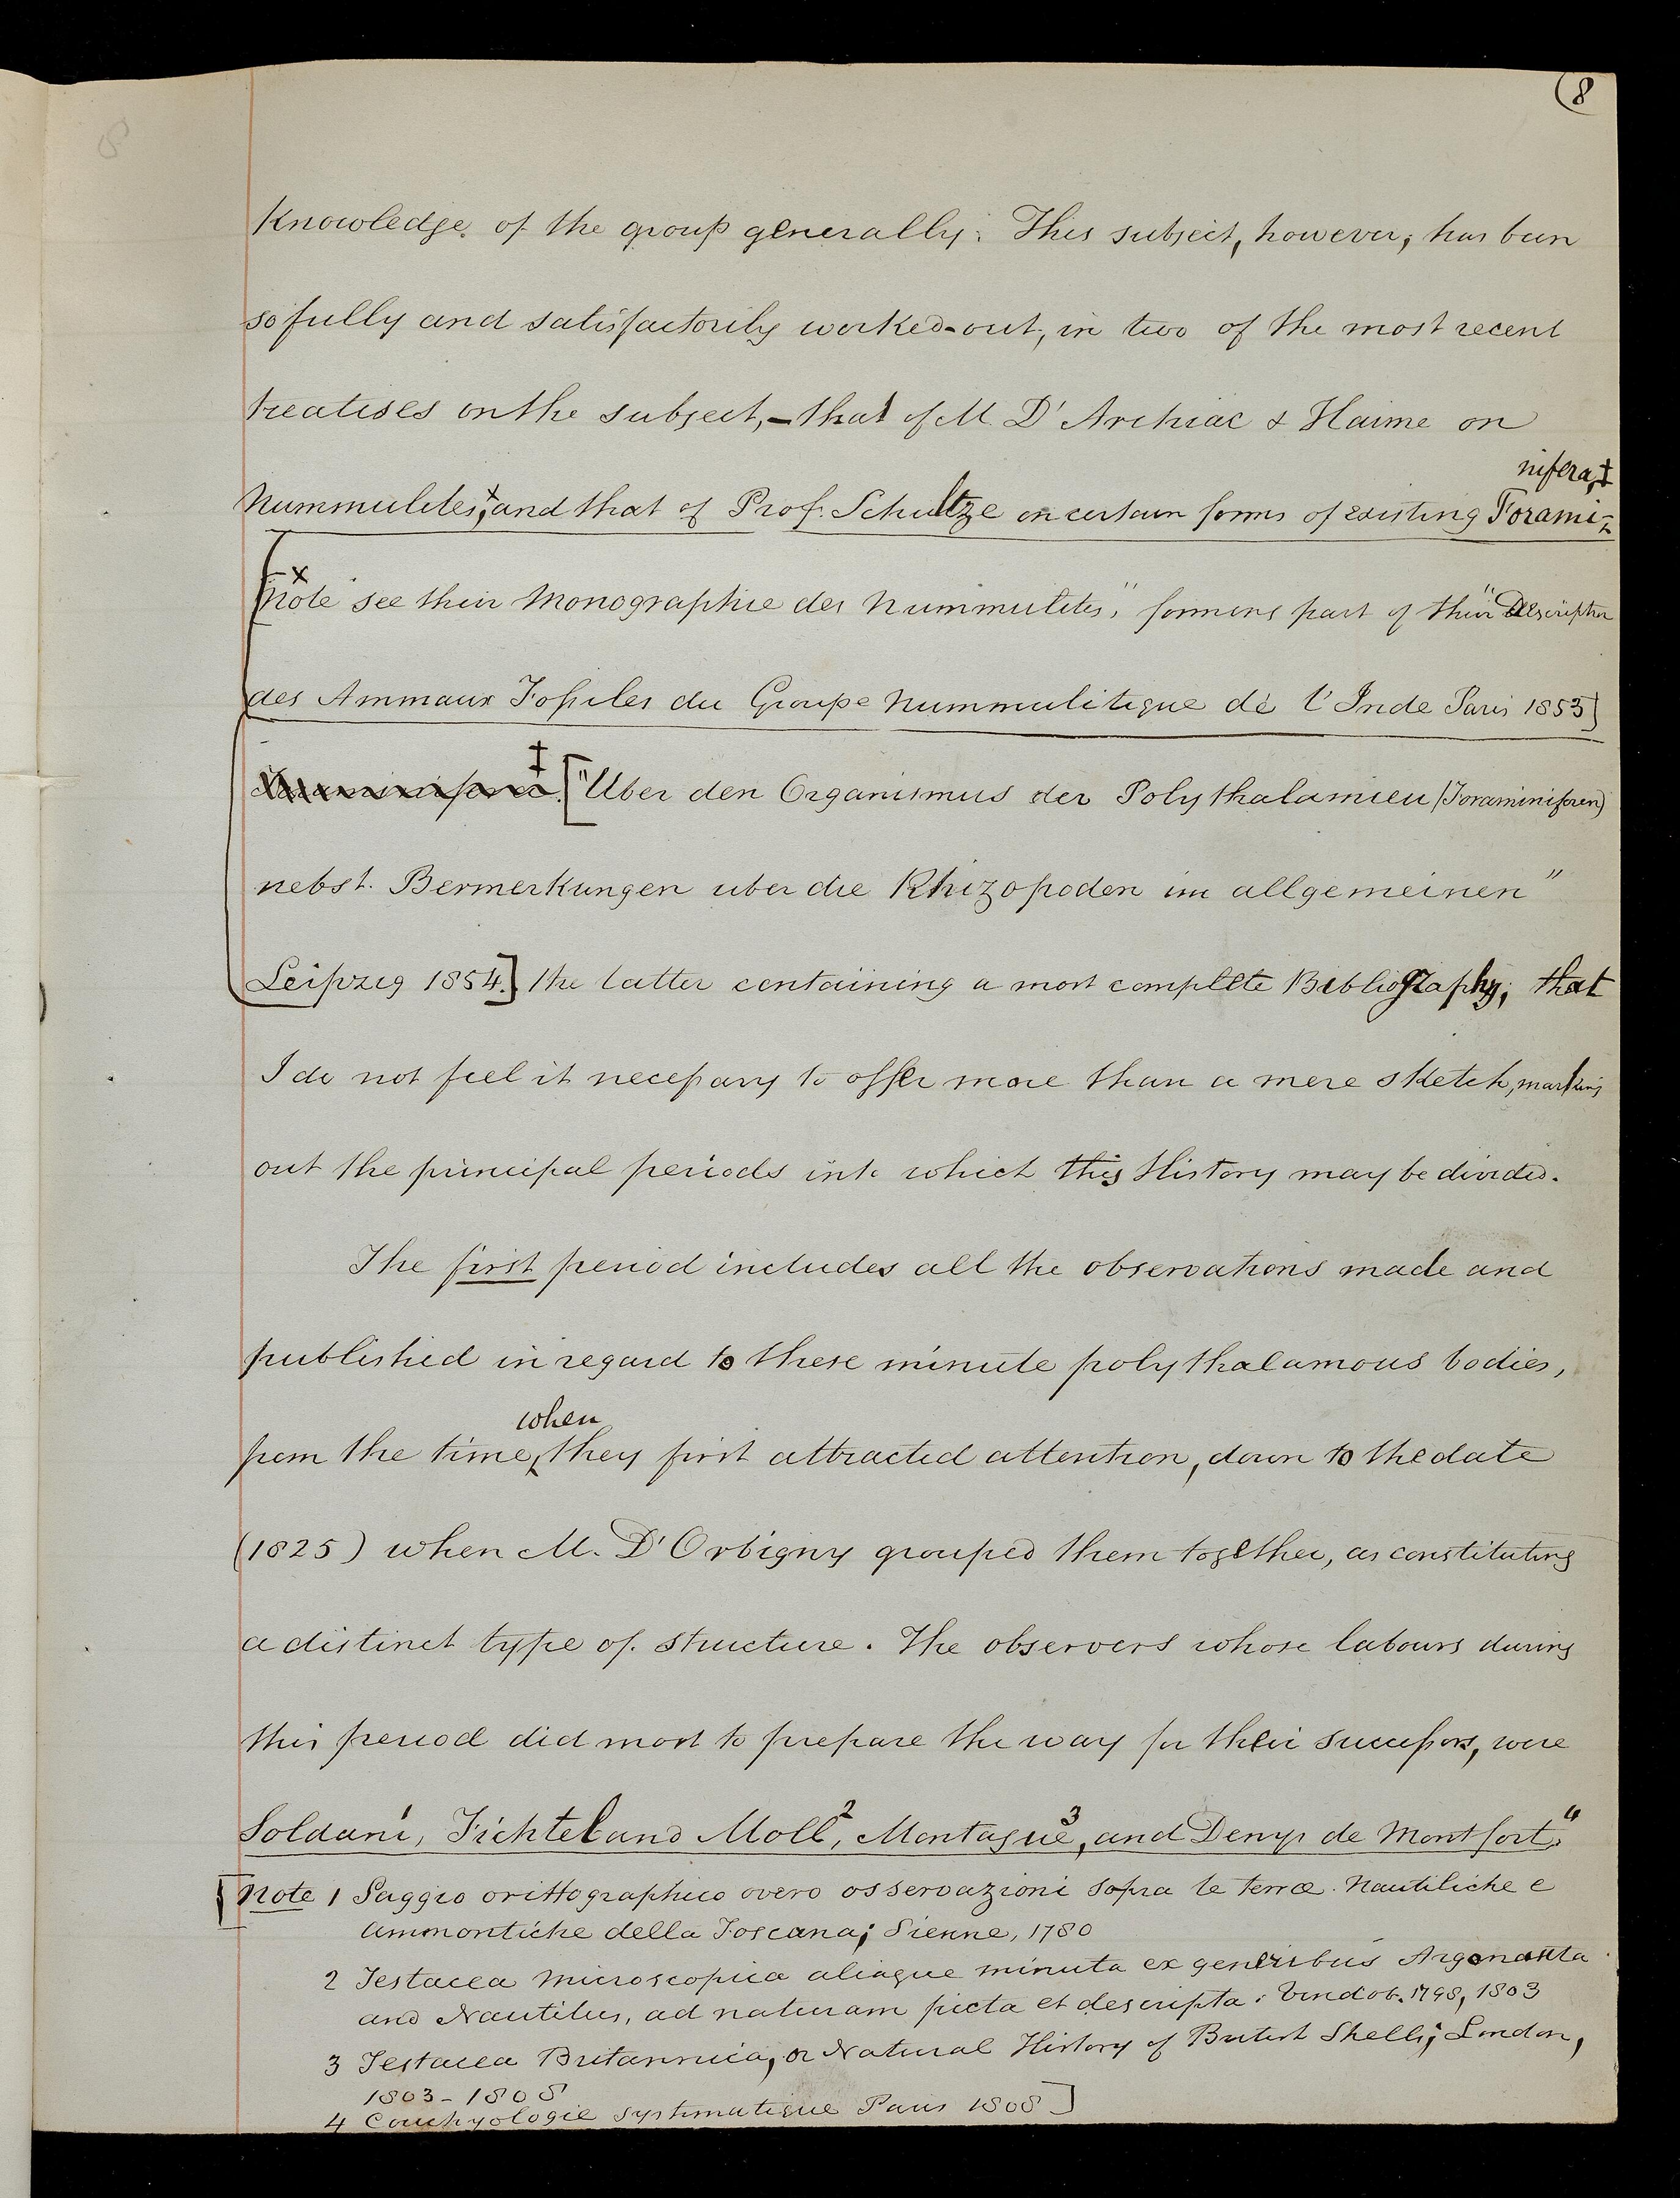 (8
Knowledge of the group generally. This subject, however, has been
so fully and satisfactorily worked-out, in two of the most recent
treatises on the subject, - that of M. D'Archiac & Haime on
nifera,‡
Nummulites,x and that of Prof. Schultze on certain forms of existing Forami-
[x Note see their Monographie des Nummulites," forming part of their "Description
des Animaux Fossiles du Groupe Nummulitique de l'Inde Paris 1853]
‡ ["Uber den Organismus der Polythalamien (Foraminiferen)
nebst. Bermerkungen uber die Rhizopoden im allgemeinen"
Leipzig 1854.] the latter containing a most complete Bibliography; that
I do not feel it necessary to offer more than a mere sketch, marking
out the principal periods into which this History may be divided.
The first period includes all the observations made and
published in regard to these minute polythalamous bodies,
when
from the time, they first attracted attention, down to the date
(1825) when M. D'Orbigny grouped them together, as constituting
a distinct type of structure. The observers whose labours during
this period did most to prepare the way for their successors, were
Soldani,1 Fichtel and Moll2, Montague3, and Denys de Montfort.4
[Note 1 Saggio orittographico overo osservazioni sopra le terræ. Nautiliche e
Ammontiche della Toscana; Sienne, 1780
2 Testacea Microscopica aliaque minuta ex generibus Argonauta
and Nautilus, ad naturam picta et descripta: Vindob. 1798, 1803
3 Testacea Britannica, or Natural History of British Shells; London,
1803-1808
4 Conchyologie systematique Paris 1808]